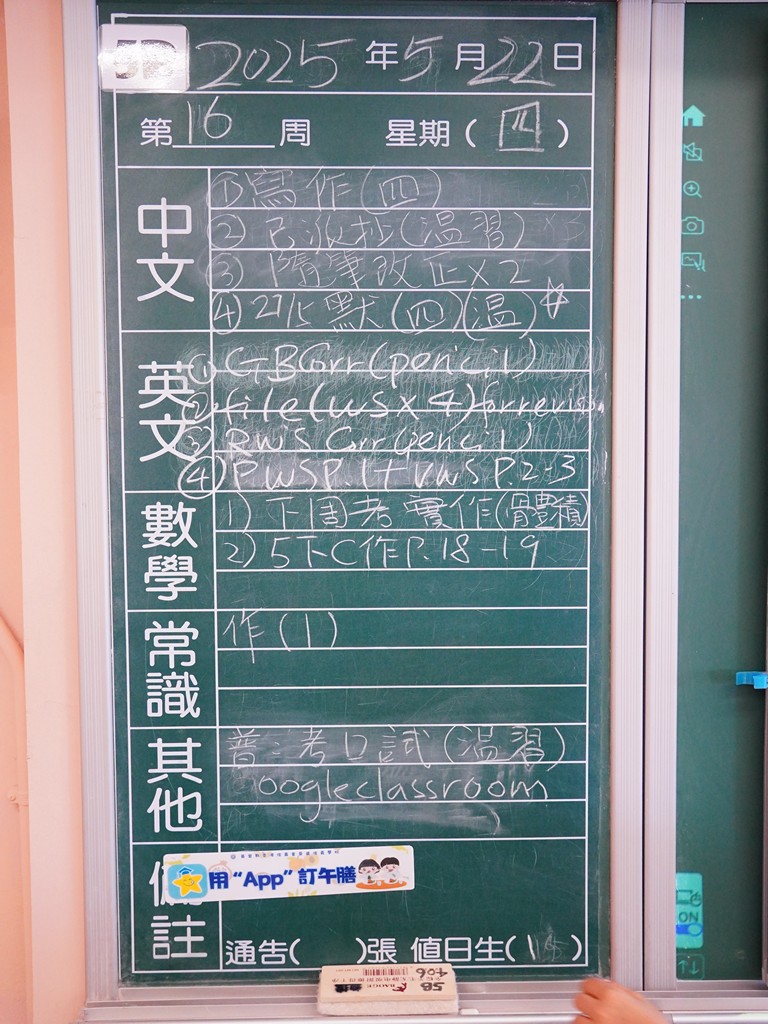 5B 2025 年 5 月 22 日
第 16 周 星期 ( 四 )
中文
① 寫作 (四)
② 已派抄 (溫習)
③ 隨筆改正 x 2
④ 默 (四) (溫)
英文
① GB Corr (pencil)
② file (WS x 4) for revision
③ RWS Corr (pencil)
④ PWS P.1 + VWS P.2-3
數學
1) 下周考實作 (體積)
2) 5下C作 P.18 - 19
常識
作 (1)
其他
普：考口試 (溫習)
google classroom
備註
用 “App” 訂午膳
通告( )張 值日生( )
5B
406